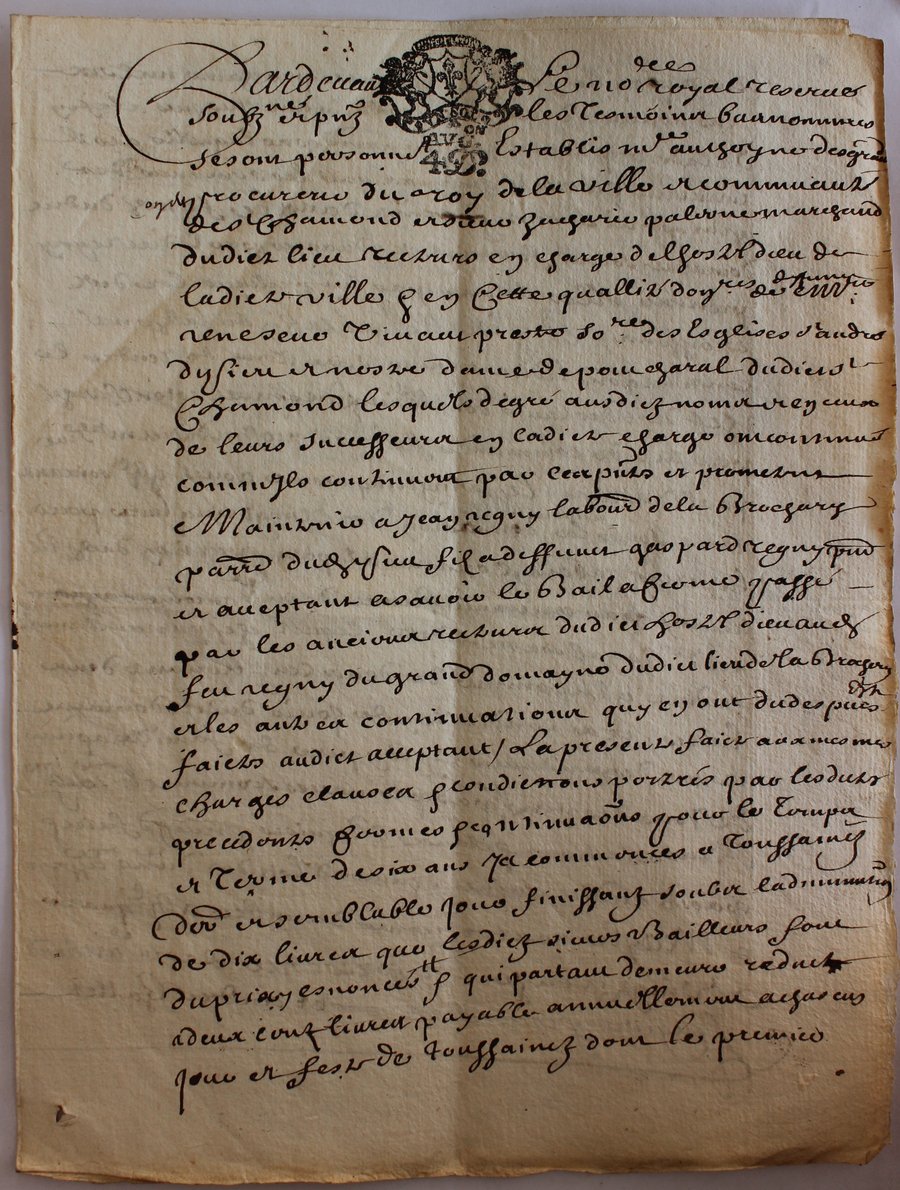 Pardevant Le no.re royal reservé
soubz.né et p.ntz les Tesmoins bas nommes
se sont personne.nt Establis m.re anthoyne
procureur du roy de la ville et communauté
de S.t Chamond et sieur Zacharie palerne marchand
dudict lieu recteurs en charge de lhostel dieu de
ladicte ville & en Cette quallité
vivant prestre so.re des Esglises s.t andre
dysieu et nostre dame de de S.t
Chamond lesquels de gré ausdictz noms et en ceux
de leurs successeurs en ladicte charge ont continué
comm'ils continuent par ces p.ntes et promettent
Maintenir a Jean regny labour.r de la Brochery
parr.e dudict ysieu filz a deffunct gaspard regny p.nt
et acceptant asavoir le Bail a ferme passé
par les anciens recteurs dudict hostel dieu aud.
feu regny du grand domayne dudict lieu de la
et les autres continuations quy en ont du despuis
faicts audict acceptant / La presente faicte aux mesmes
charges clauses & condictions portées par lesdicts
precedents fermes & continua.ons pour le Temps
et Terme de six ans Ja commencés a Toussainctz
der.r et semblable jour finissant soubz la diminution
de dix livres que lesdictz sieurs Bailleurs font
du prix y esnoncés & qui partant demeure reduict
a deux centz livres payable annuellement a chascun
jour et feste de Toussainctz dont le premier